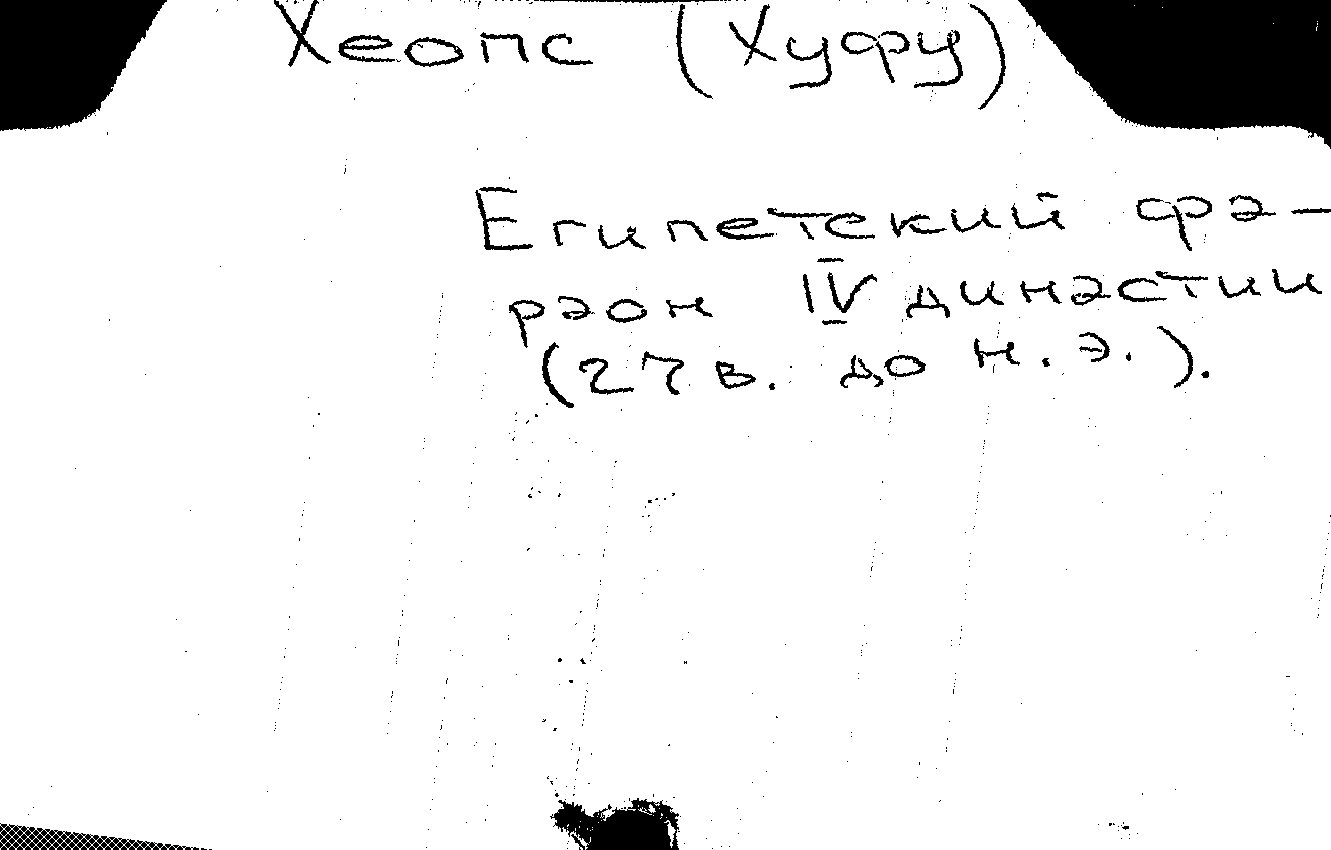 Хеопс (Хуфу)
Египетский фа-
раон IV династии
(27 в. до н. э.).